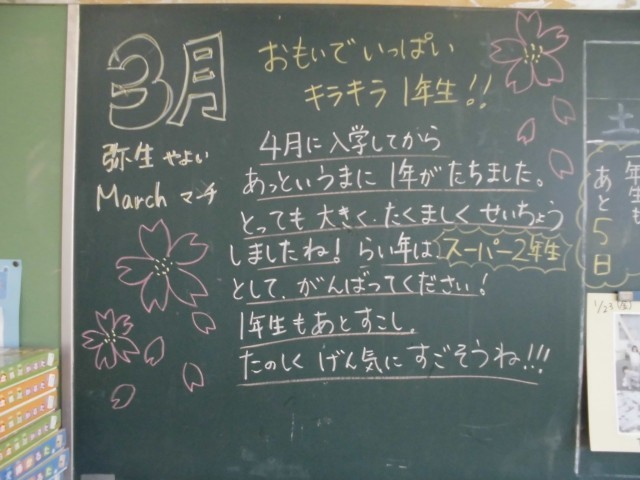 3月
弥生 やよい
March マーチ
おもいで いっぱい
キラキラ 1年生!!
4月に入学してから
あっというまに 1年が たちました。
とっても 大きく、たくましく せいちょう
しましたね! らい年は スーパー2年生
として、がんばってください!
1年生もあとすこし。
たのしく げん気に すごそうね!!!
土
あと
5
日
1/23(金)